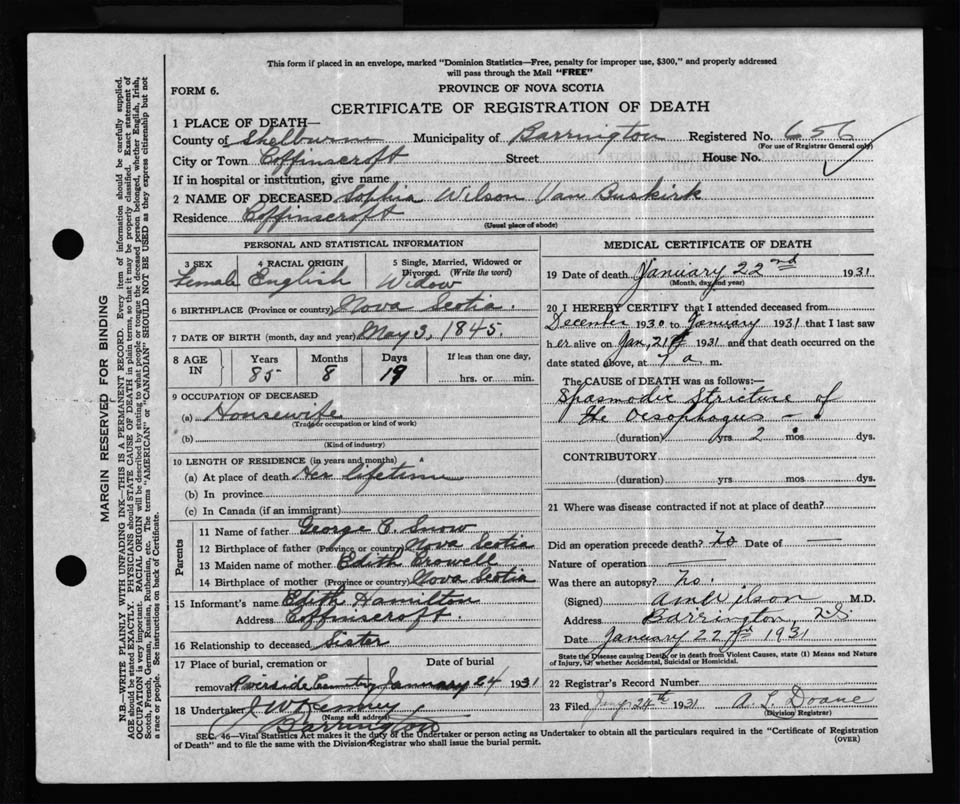 This form if placed in an envelope, marked "Dominion Statistics—Free, penalty for improper use, $300," and properly addressed
will pass through the Mail "FREE"
FORM 6.
PROVINCE OF NOVA SCOTIA
CERTIFICATE OF REGISTRATION OF DEATH
1 PLACE OF DEATH—
County of Shelburne Municipality of Barrington Registered No. 656
(For use of Registrar General only)
City or Town Coffinscroft Street House No.
If in hospital or institution, give name
2 NAME OF DECEASED Sophia Wilson Van Buskirk
Residence Coffinscroft
(Usual place of abode)
PERSONAL AND STATISTICAL INFORMATION
3 SEX 4 RACIAL ORIGIN 5 Single, Married, Widowed or Divorced. (Write the word)
Female English Widow
6 BIRTHPLACE (Province or country) Nova Scotia.
7 DATE OF BIRTH (month, day and year) May 3, 1845.
8 AGE IN Years Months Days If less than one day,
85 8 19 hrs. or min.
9 OCCUPATION OF DECEASED
(a) Housewife
(Trade or occupation or kind of work)
(b)
(Kind of industry)
10 LENGTH OF RESIDENCE (in years and months)
(a) At place of death Her lifetime
(b) In province
(c) In Canada (if an immigrant)
Parents
11 Name of father George C. Snow
12 Birthplace of father (Province or country) Nova Scotia
13 Maiden name of mother Edith Crowell
14 Birthplace of mother (Province or country) Nova Scotia
15 Informant's name Edith Hamilton
Address Coffinscroft.
16 Relationship to deceased Sister
17 Place of burial, cremation or Date of burial
removal Riverside Cemetry January 24 1931
18 Undertaker J W Kenney
(Name and address)
Barrington
MEDICAL CERTIFICATE OF DEATH
19 Date of death January 22nd 1931
(Month, day and year)
20 I HEREBY CERTIFY that I attended deceased from
December 1930 to January 1931 that I last saw
her alive on Jan, 21st 1931 and that death occurred on the
date stated above, at 7 a m.
The CAUSE OF DEATH was as follows:—
Spasmodic Stricture of
the Oesophagus —
(duration) yrs 2 mos dys.
CONTRIBUTORY
(duration) yrs. mos. dys.
21 Where was disease contracted if not at place of death?
Did an operation precede death? No Date of —
Nature of operation —
Was there an autopsy? No.
(Signed) A M Wilson M.D.
Address Barrington, N.S.
Date January 22nd 1931
State the Disease causing Death, or in death from Violent Causes, state (1) Means and Nature
of Injury, (2) whether Accidental, Suicidal or Homicidal.
22 Registrar's Record Number
23 Filed Jany 24th 1931 A. L. Doane
(Division Registrar)
SEC. 46—Vital Statistics Act makes it the duty of the Undertaker or person acting as Undertaker to obtain all the particulars required in the "Certificate of Registration
of Death" and to file the same with the Division Registrar who shall issue the burial permit.
(OVER)
MARGIN RESERVED FOR BINDING
N.B.—WRITE PLAINLY WITH UNFADING INK—THIS IS A PERMANENT RECORD. Every item of information should be carefully supplied.
AGE should be stated EXACTLY. PHYSICIANS should STATE CAUSE OF DEATH in plain terms, so that it may be properly classified. Exact statement of
OCCUPATION is very important. RACIAL ORIGIN will be described by stating to what people or tongue the deceased person belonged, whether English, Irish,
Scotch, French, German, Russian, Ruthenian, etc. The terms "AMERICAN" or "CANADIAN" SHOULD NOT BE USED as they express citizenship but not
a race or people. See instructions on back of Certificate.